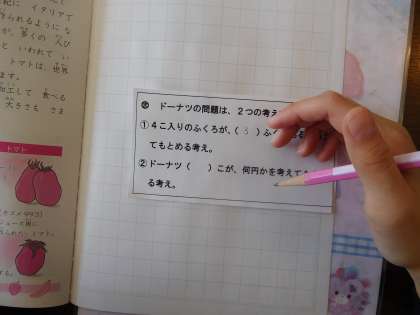 紀に イタリアで
作られるようにな
が、多くの 人び
と いわれて い
トマトは、世界
ます。
加工して 食べる
大きさも さま
トマト
ドーナツの問題は、2つの考え
①4こ入りのふくろが、( 3 )ふく
てもとめる考え。
②ドーナツ( )こが、何円かを考えて
る考え。